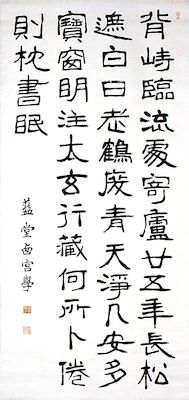 背峙臨流處寄廬廿五年長松
遮白日老鶴戾青天淨几安多
寶窗明注太玄行藏何所卜倦
則枕書眠
藍堂